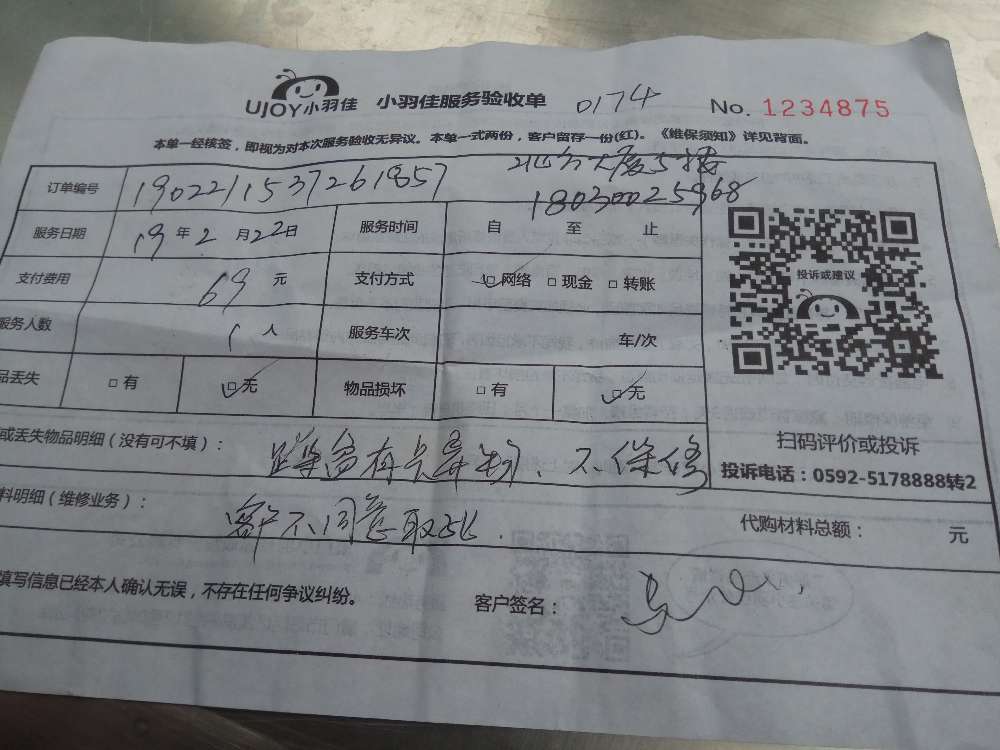 UJOY小羽佳 小羽佳服务验收单 0174 No. 1234875
本单一经核签，即视为对本次服务验收无异议。本单一式两份，客户留存一份(红)。《维保须知》详见背面。
订单编号 1902211537261857 大厦5楼
18030025968
服务日期 19年2月22日 服务时间 自 至 止
支付费用 69 元 支付方式 □网络 □现金 □转账
服务人数 1 人 服务车次 车/次
品丢失 □有 □无 物品损坏 □有 □无
投诉或建议
扫码评价或投诉
投诉电话：0592-5178888转2
或丢失物品明细（没有可不填）： 蹲盆有卡异物、不保修
料明细（维修业务）： 客户不同意取出. 代购材料总额： 元
填写信息已经本人确认无误，不存在任何争议纠纷。 客户签名：